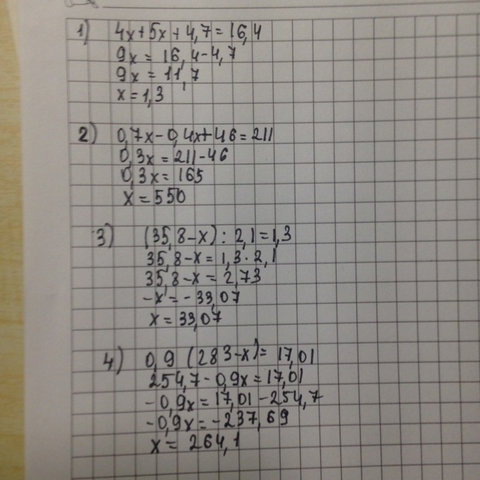 1) 4x+5x+4,7=16,4
9x = 16,4-4,7
9x = 11,7
x=1,3
2) 0,7x-0,4x+46=211
0,3x=211-46
0,3x=165
x=550
3) (35,8-x):2,1=1,3
35,8-x=1,3·2,1
35,8-x=2,73
-x=-33,07
x=33,07
4) 0,9 (283-x)=17,01
254,7-0,9x=17,01
-0,9x=17,01-254,7
-0,9x=-237,69
x= 264,1